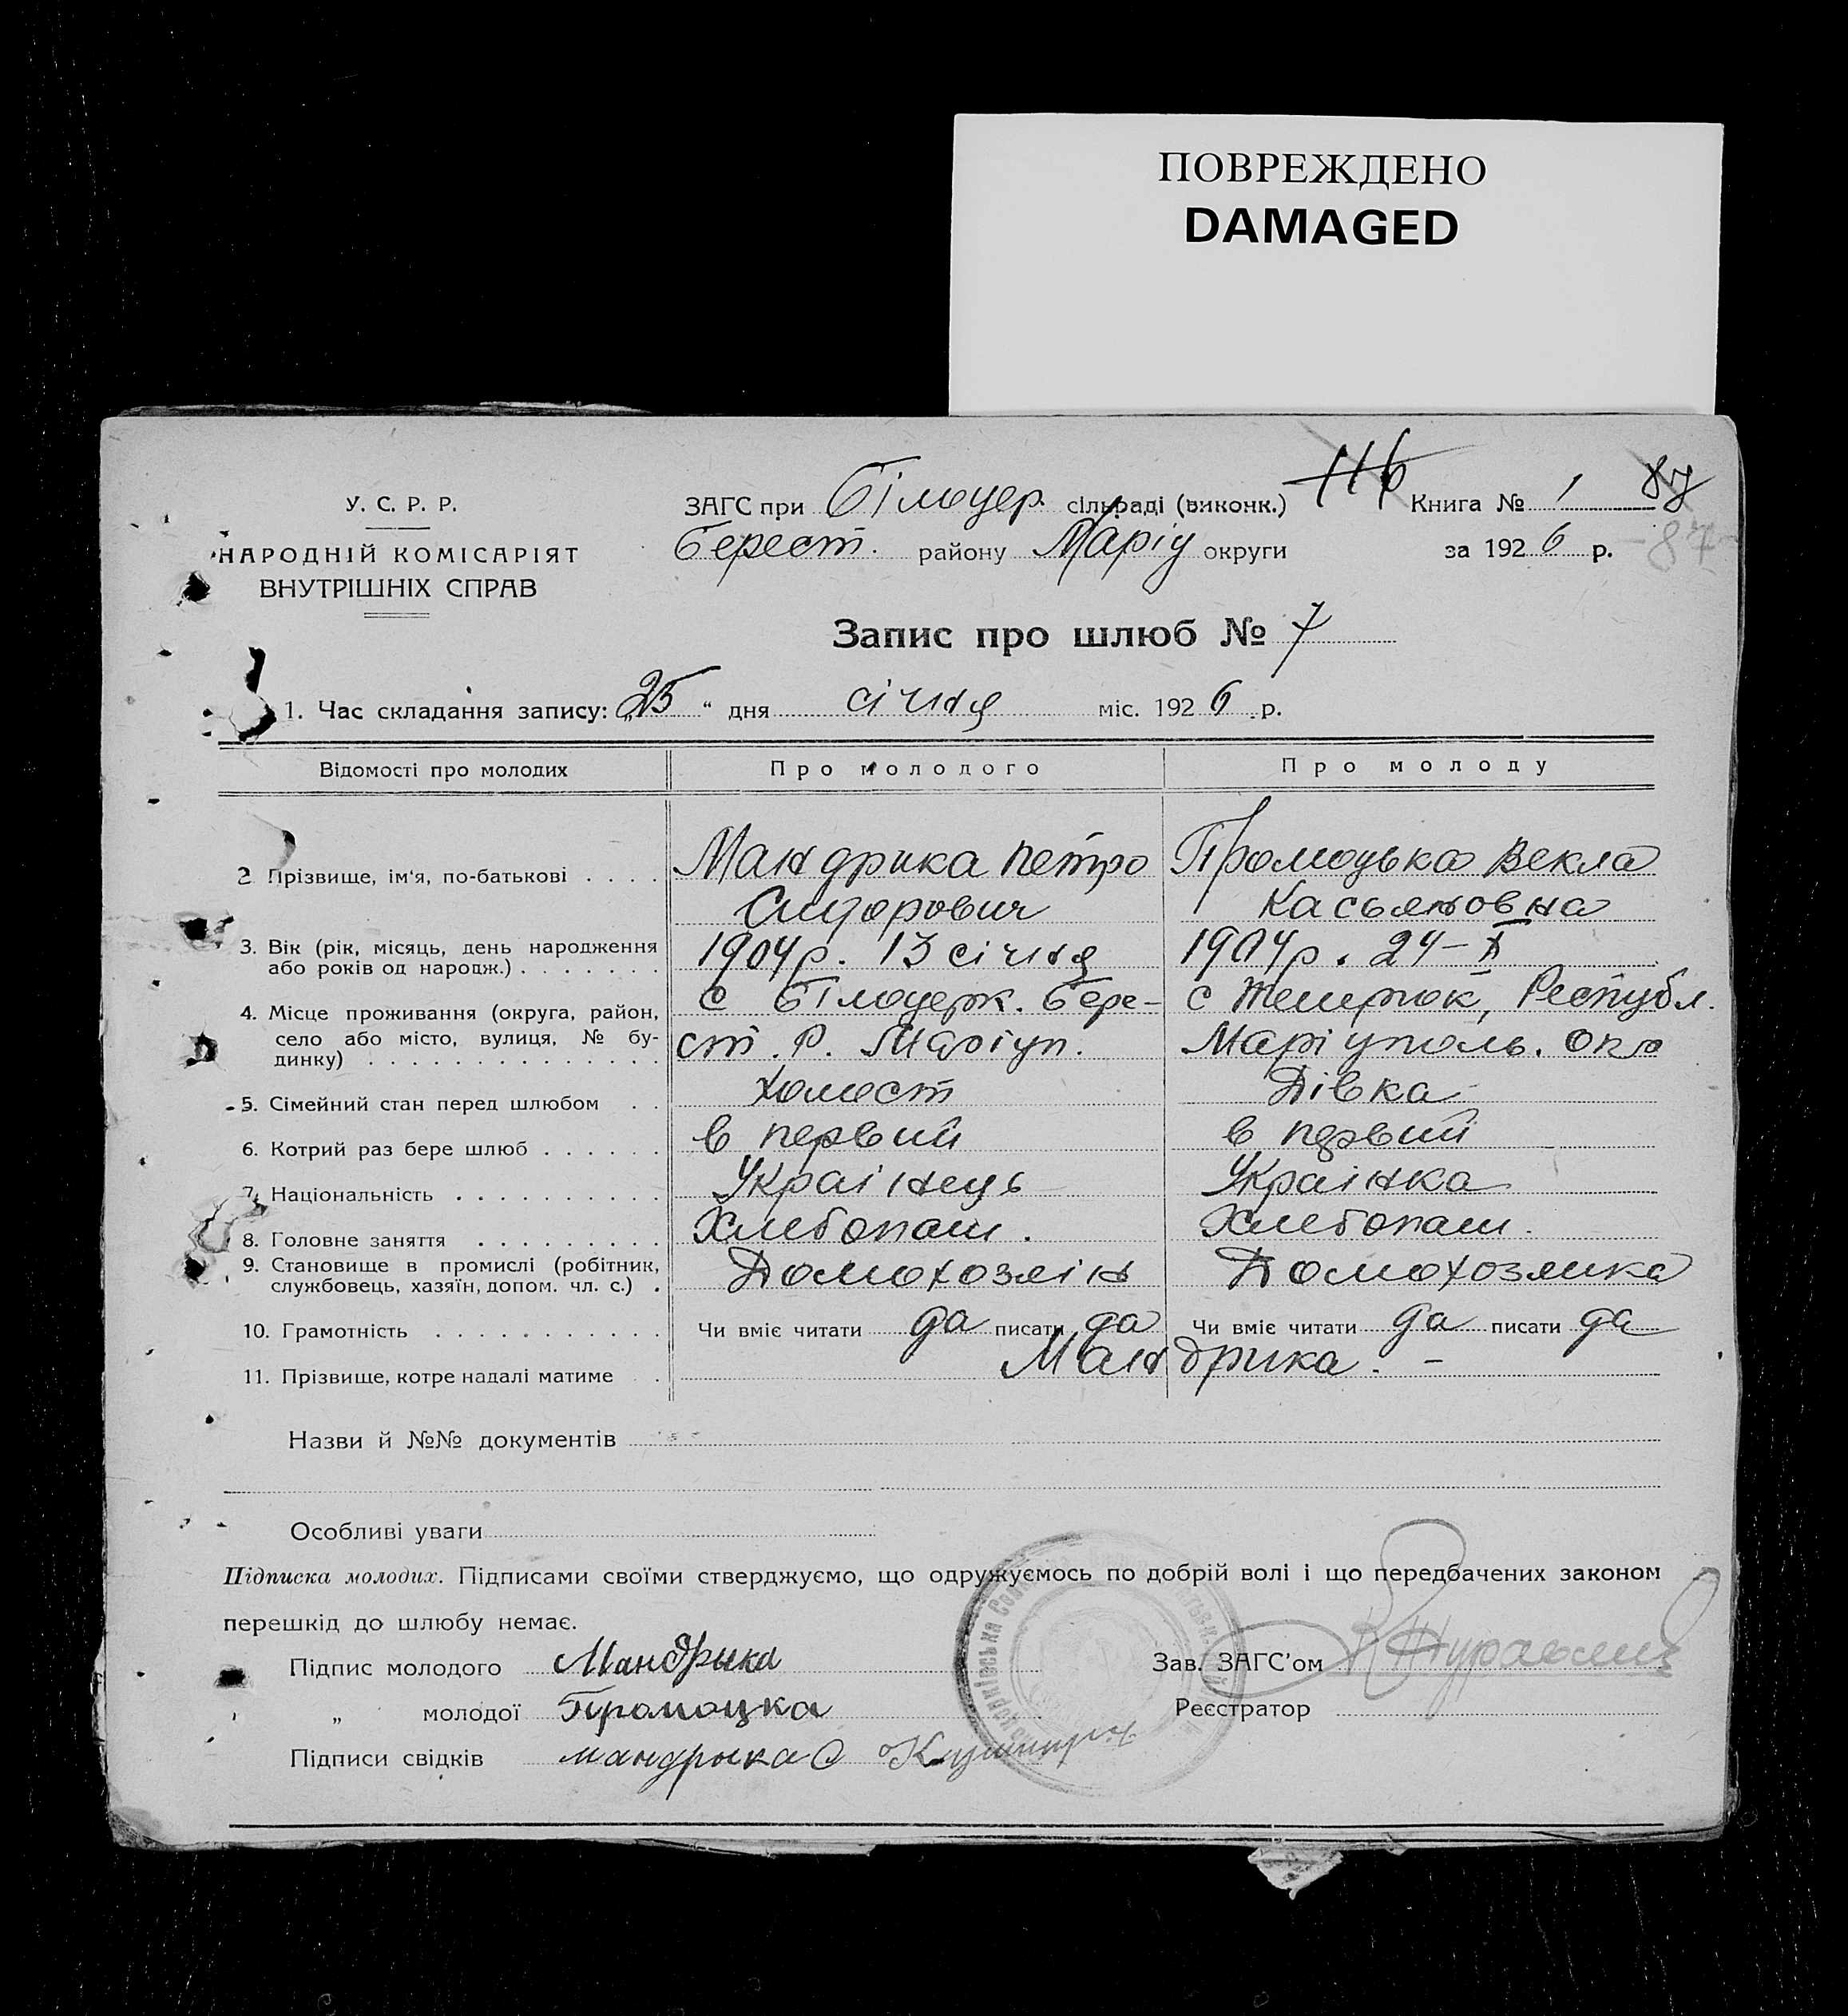 ПОВРЕЖДЕНО
DAMAGED
У. С. Р. Р.
НАРОДНІЙ КОМІСАРІЯТ
ВНУТРІШНІХ СПРАВ
ЗАГС при Білоцер. сільраді (виконк.) 116 Книга № 1 87
Берест. району Маріу округи за 1926 р. 87
Запис про шлюб № 7
1. Час складання запису: „25“ дня січня міс. 1926 р.
Відомості про молодих Про молодого Про молоду
2 Прізвище, ім'я, по-батькові . . . . Мандрика Петро Промоцька Векла
Сидорович Касьяновна
3. Вік (рік, місяць, день народження
або років од народж.) . . . . . . . 1904р. 13 січня 1904р. 24-X
4. Місце проживання (округа, район, с Білоцерк. Бере- с Темрюк, Республ.
село або місто, вулиця, № бу-
динку) . . . . . . . . . . . . . ст. Р. Маріуп. Маріуполь. Окр
5. Сімейний стан перед шлюбом . . Холост Дівка
6. Котрий раз бере шлюб . . . . . . в первий в первий
7. Національність . . . . . . . . . . Украінець Украінка
8. Головне заняття . . . . . . . . . Хлебопаш. Хлебопаш.
9. Становище в промислі (робітник,
службовець, хазяїн, допом. чл. с.) . Домохозяін Домохозяика
10. Грамотність . . . . . . . . . . . Чи вміє читати да писати да Чи вміє читати да писати да
11. Прізвище, котре надалі матиме . Мандрика. -
Назви й №№ документів
Особливі уваги
Підписка молодих. Підписами своїми стверджуємо, що одружуємось по добрій волі і що передбачених законом
перешкід до шлюбу немає.
Підпис молодого Мандрыка Зав. ЗАГС'ом Журавлив
„ молодої Промоцка Реєстратор
Підписи свідків мандрыка С